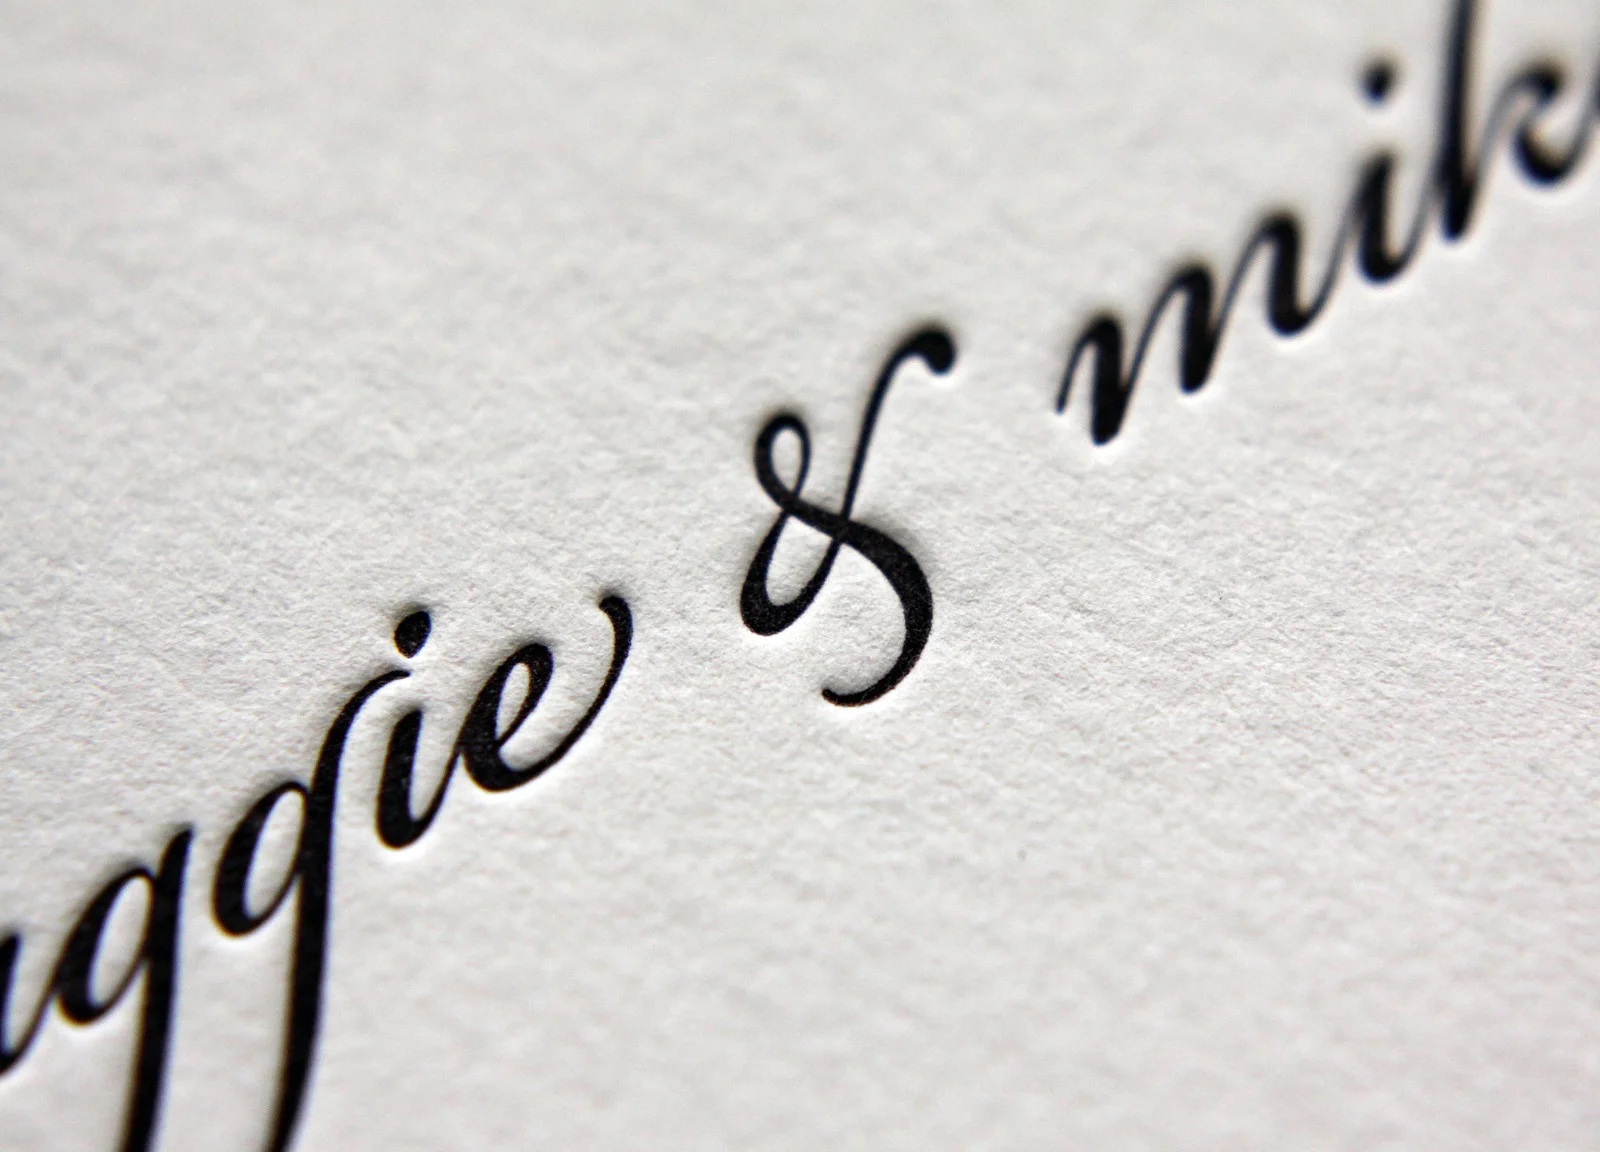 aggie & mik